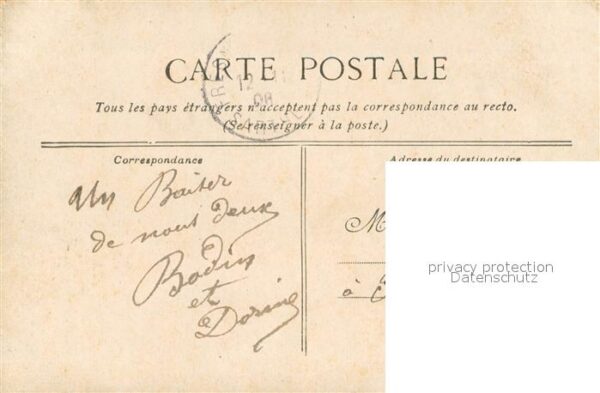 CARTE POSTALE
Tous les pays étrangers n'acceptent pas la correspondance au recto.
(Se renseigner à la poste.)
Correspondance
Adresse du destinataire
Un Baiser
de nous deux
et
M
à
privacy protection
Datenschutz
12
08
SARTHE